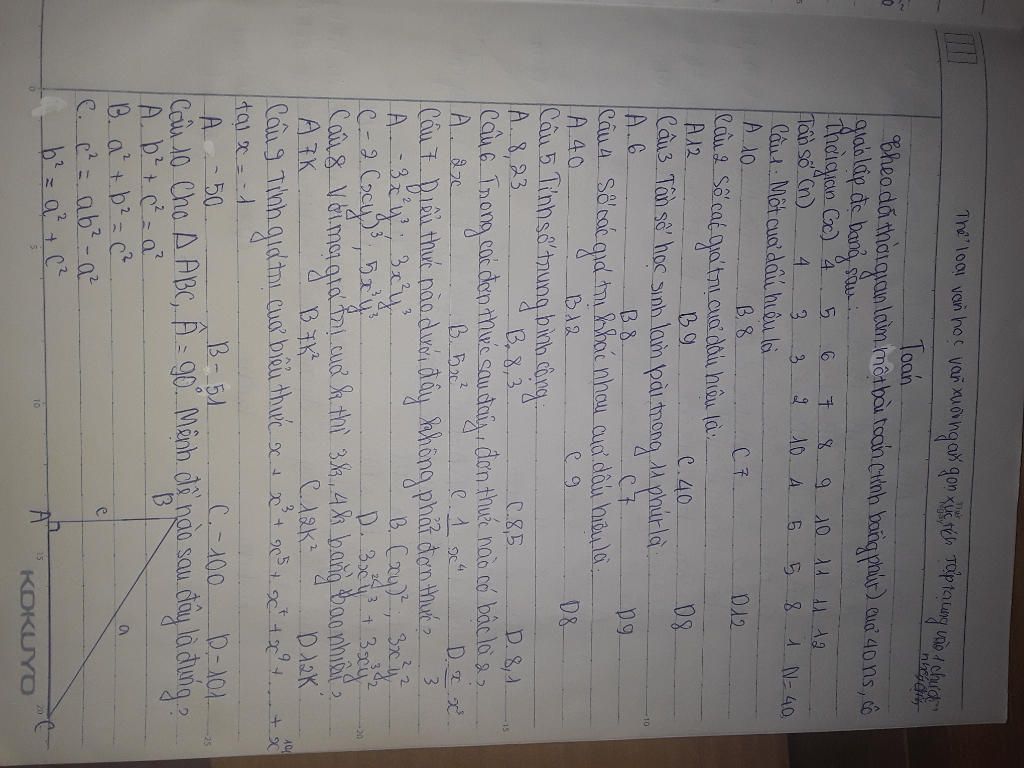 Thể loại văn học văn xuôi ngắn gọn xúc tích tập trung vào 1 chuỗi
Toán
Theo dõi thời gian làm một bài toán (tính bằng phút) của 40 hs, cô
giáo lập đc bảng sau:
Thời gian (x) 4 5 6 7 8 9 10 11 12
Tần số (n) 4 3 3 2 10 4 5 5 8 1 N = 40
Câu 1. Mốt của dấu hiệu là
A 10 B 8 C 7 D 12
Câu 2 Số các giá trị của dấu hiệu là:
A 12 B 9 C 40 D 8
Câu 3 Tần số học sinh làm bài trong 11 phút là:
A. 6 B 8 C 7 D 9
Câu 4 Số các giá trị khác nhau của dấu hiệu là:
A. 40 B. 12 C 9 D 8
Câu 5 Tính số trung bình cộng.
A. 8,23 B. 8,3 C. 8,5 D. 8,1
Câu 6 Trong các đơn thức sau đây, đơn thức nào có bậc là 2?
A. 2x B. 5x² C. 1 x⁴ D x x³
Câu 7 Biểu thức nào dưới đây không phải đơn thức?
A. -3x²y³. 3x²y³ B (xy)², 3x²y²
C -2 (xy)³, 5x³y³ D. 3x²y³ + 3x³y²
Câu 8 Với mọi giá trị của k thì 3k, 4k bằng bao nhiêu?
A 7K B. 7K² C. 12K² D 12K
Câu 9 Tính giá trị của biểu thức x + x³ + x⁵ + x⁷ + x⁹ + .... + x¹⁰¹
tại x = -1
A - 50 B - 51 C. - 100 D - 101
Câu 10 Cho Δ ABC, Â = 90°. Mệnh đề nào sau đây là đúng?
A. b² + c² = a²
B. a² + b² = c²
C. c² = ab² - a²
b² = a² + c²
B
c
a
A
C
KOKUYO